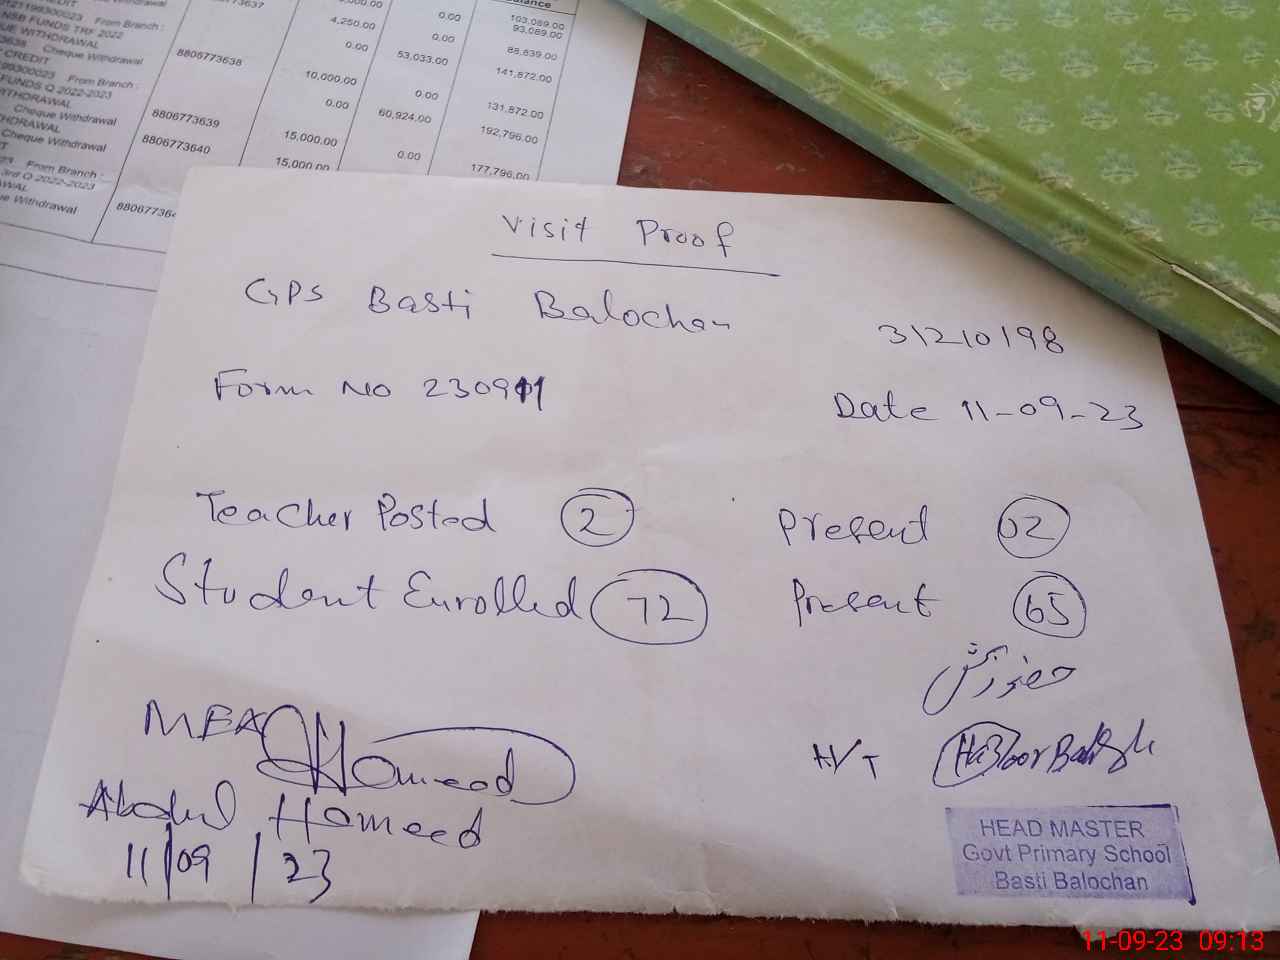 Balance
103,089.00
0.00 93,089.00
4,250.00 0.00 88,839.00
From Branch :
NSB FUNDS TRF 2022
0.00 53,033.00 141,872.00
Cheque Withdrawal 8806773638 10,000.00 0.00 131,872.00
CREDIT
From Branch :
FUNDS Q 2022-2023
0.00 60,924.00 192,796.00
Cheque Withdrawal 8806773639 15,000.00 0.00 177,796.00
Cheque Withdrawal 8806773640 15,000.00
From Branch :
3rd Q 2022-2023
Withdrawal
Visit Proof
GPS Basti Balochan 31210198
Form No 230911 Date 11-09-23
Teacher Posted 2 Present 02
Student Enrolled 72 Present 65
MEA Hameed
H/T
Abdul Hameed
11/09/23
HEAD MASTER
Govt Primary School
Basti Balochan
11-09-23 09:13